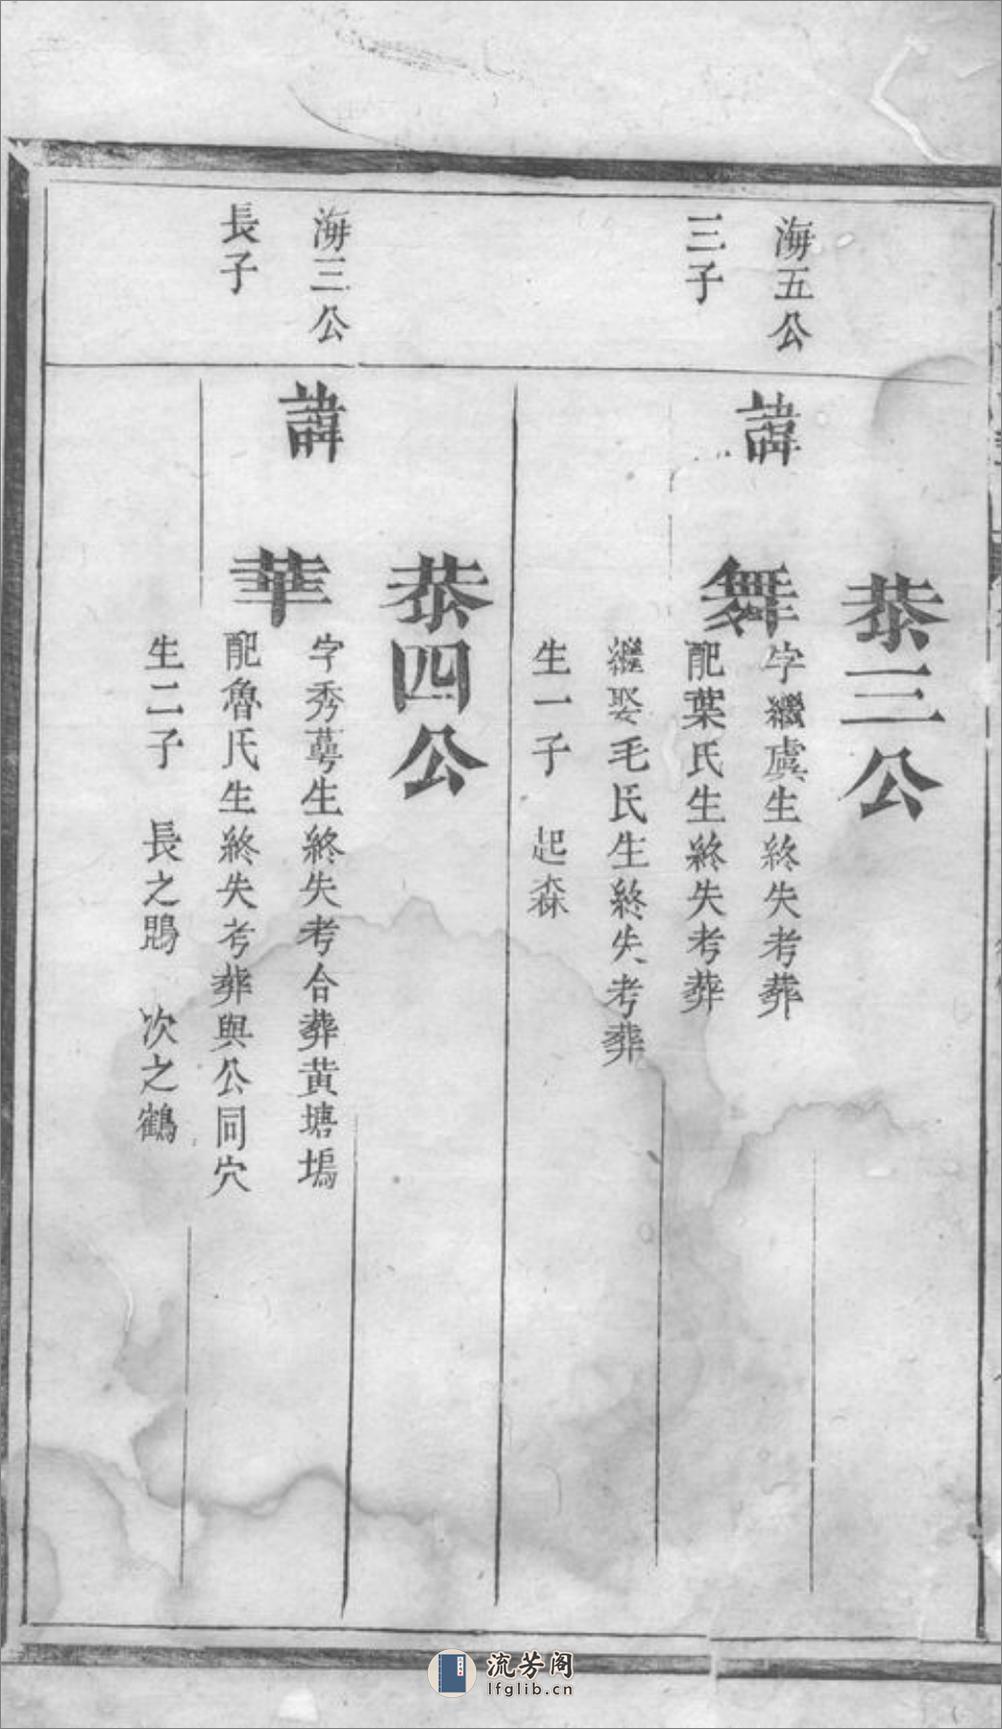 海五公
三子
恭三公
諱 舞
字繼虞生終失考葬
配葉氏生終失考葬
繼娶毛氏生終失考葬
生一子 起森
海三公
長子
恭四公
諱 華
字秀萼生終失考合葬黄塘塢
配魯氏生終失考葬與公同穴
生二子 長之鵾 次之鶴
流芳阁
lfglib.cn